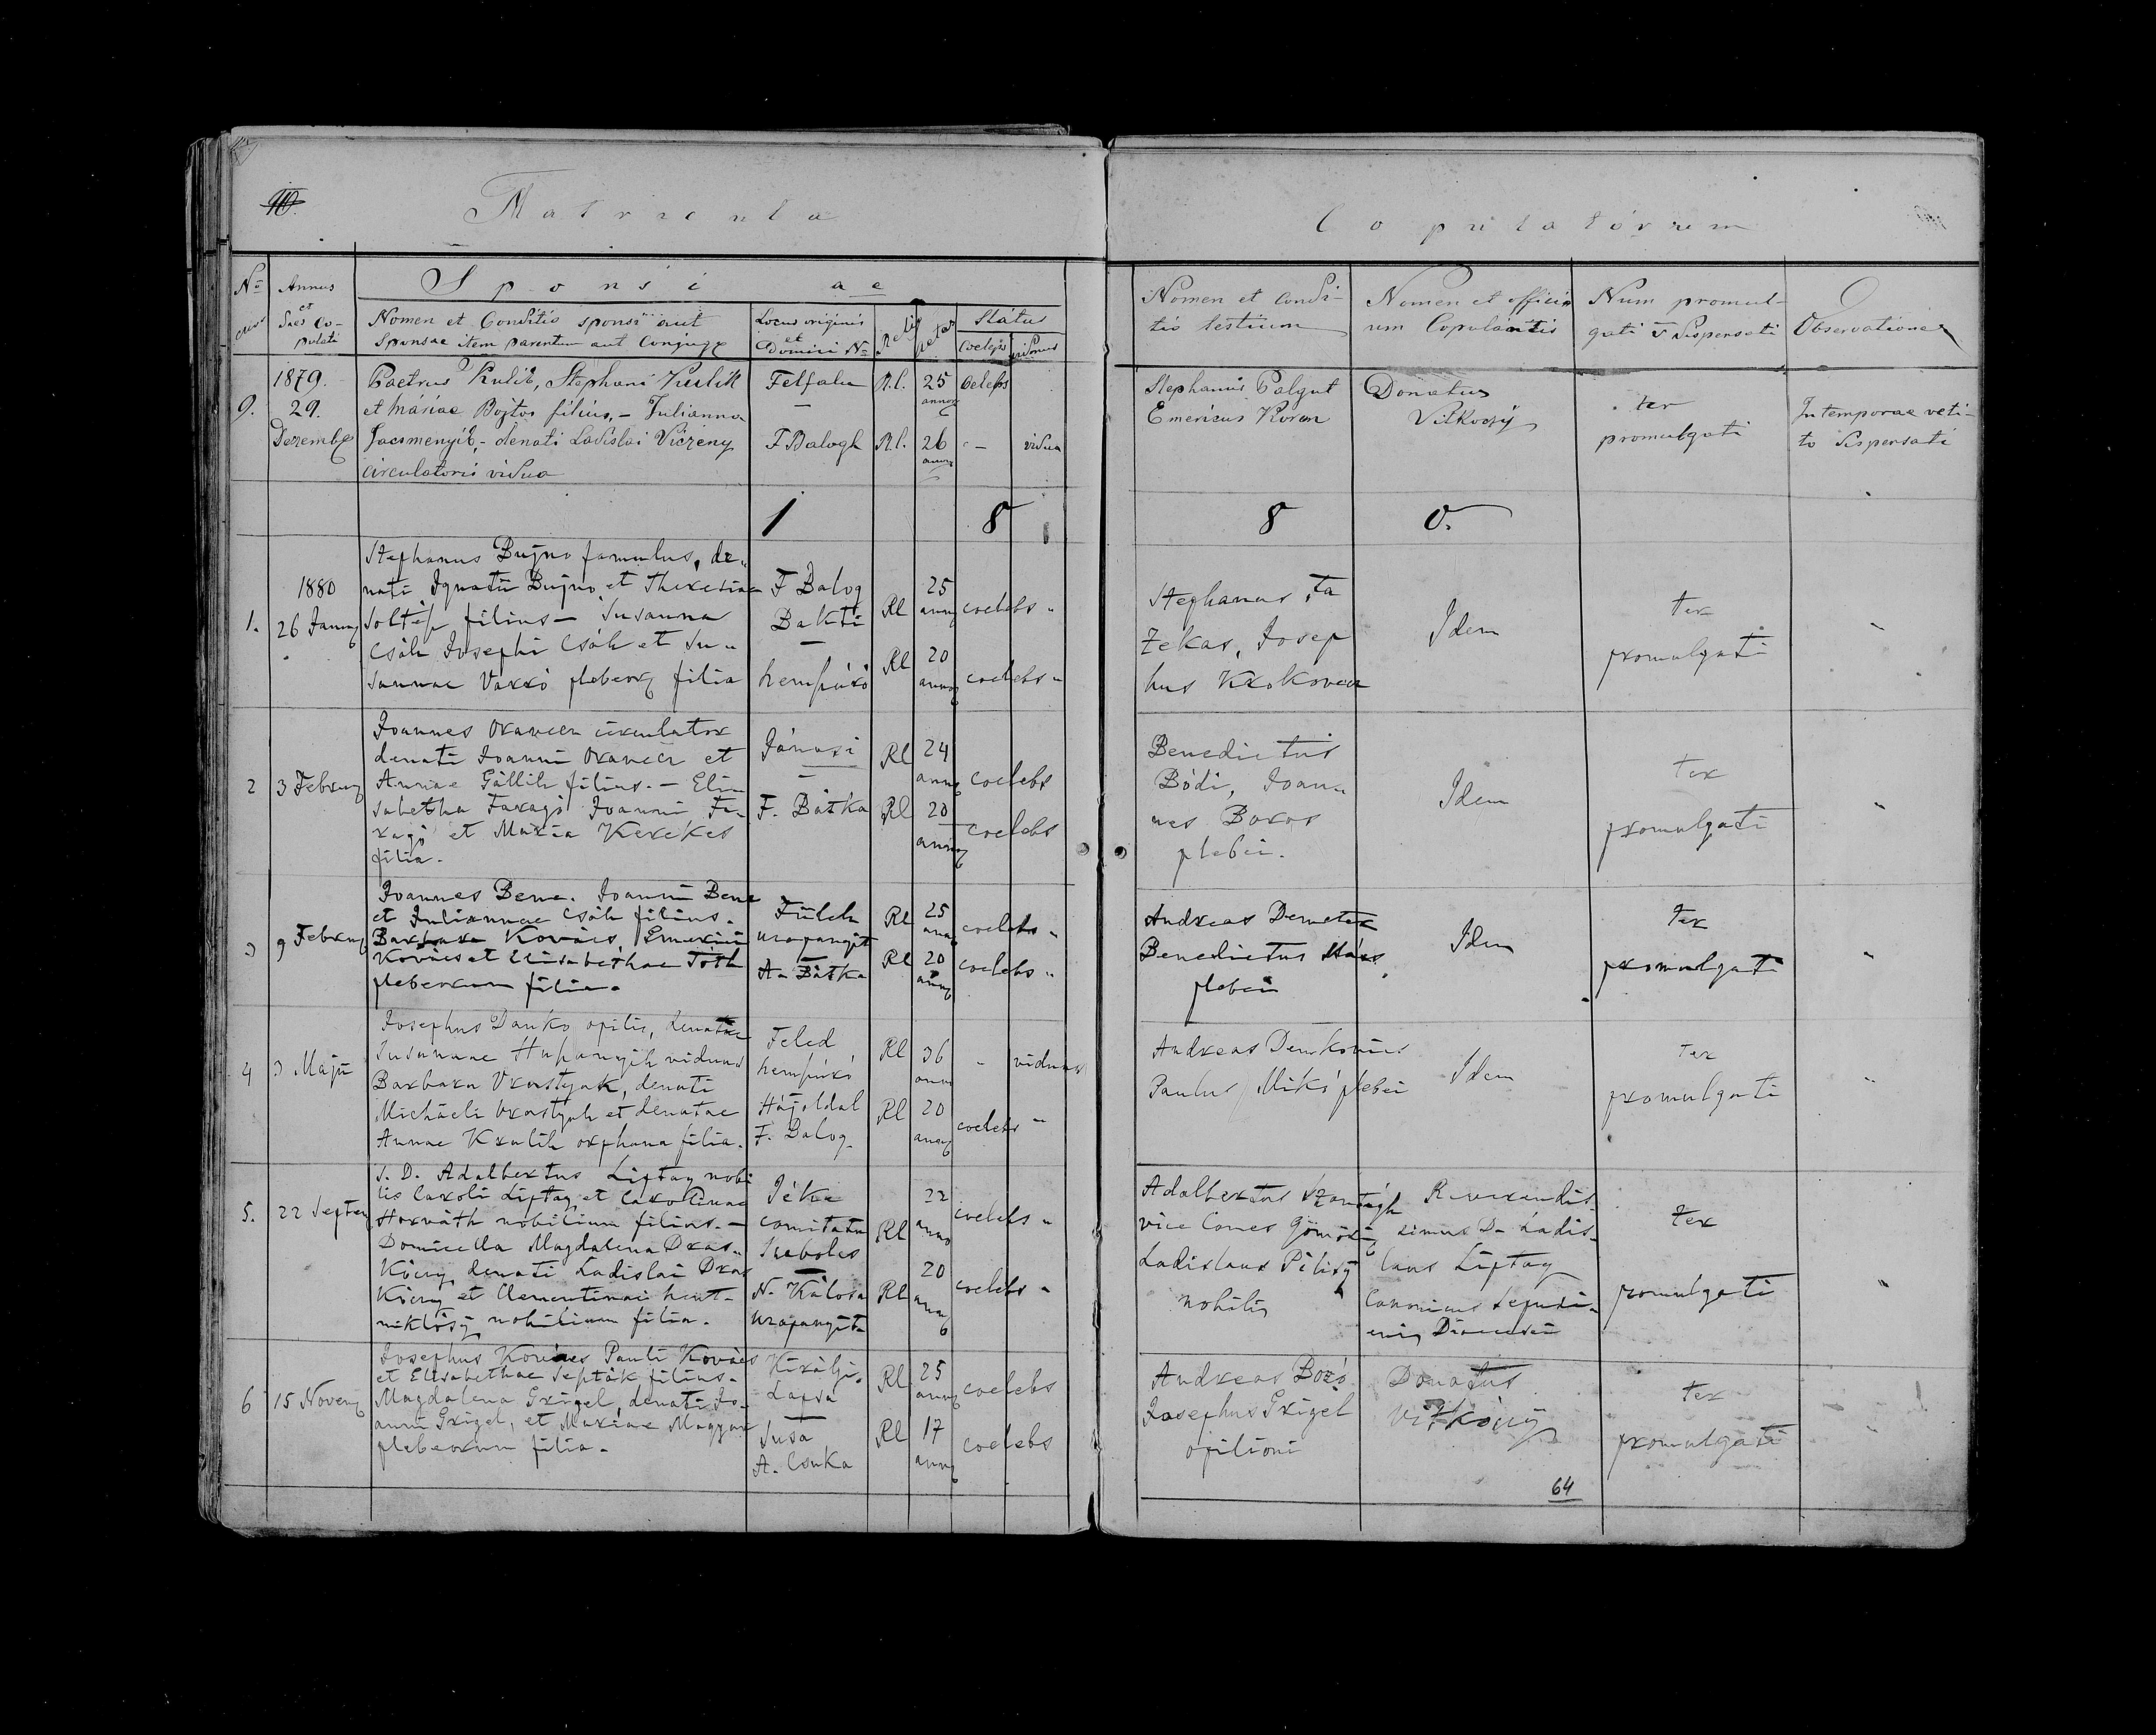 Matricula
Copulatorum
No
Annus
et
Dies Co-
pulati
Sponsi ae
Nomen et Conditio sponsi aut
Sponsae item parentum aut Conjugx
Locus originis
et
Domini No
Relig
aetas
Status
Coelebs
viduus
Nomen et Condi-
tio testium
Nomen et officii
um Copulantis
Num promul-
gati v dispensati
Observationes
9.
1879.
29.
Dezemb
Paetrus Kulik, Stephani Kulik
et Máriae Bojtos filius, - Julianna
Jacsmenyik, - denati Ladislai Viczeny
circulatoris vidua
Felfalu
F Balogh
R.l. 25 annor Celebs
R.l. 26 annor - vidua
Stephanus Palgut
Emericus Koron
Donatus
Vitkoczy
ter
promulgati
In temporae veti-
to dispensati
1 8 8 0.
1.
1880
26 Januar
Stephanus Bujno famulus, de-
nati Ignatii Bujno et Theresiae
Soltés filius - Susanna
Csák Josephi Csák et Su-
sannae Varró plebeor filia
F Balog
Bakti
hempúró
Rl 25 annor coelebs "
Rl 20 annor coelebs "
Stephanus Ta
Zekas, Josep
hus Krokovecz
Idem
ter
promulgati
2
3 Februar
Joannes Oravecz circulator
denati Joanni Oravecz et
Annae Gállik filius. - Eli-
sabetha Faragó Joanni Fa-
ragó et Maria Kerekes
filia.
Jánosi
F. Bátka
Rl 24 annor coelebs
Rl 20 annor coelebs
Benedictus
Bódi, Joan-
nes Boros
plebei.
Idem
ter
promulgati
3
9 Februar
Joannes Bene. Joanni Bene
et Juliannae Csák filius.
Barbara Kovács, Emerici
Kovács et Elisabethae Tóth
plebeorum filia.
Fülek
A. Bátka
Rl 25 annor coelebs "
Rl 20 annor coelebs "
Andreas Demeter
Benedictus
plebei
Idem
ter
promulgati
4
3 Maji
Josephus Danko opilio, denatae
Susannae viduus
Barbara Vrastyak, denati
Michaeli Vrastyak et denatae
Annae Kralik orphana filia.
Feled
hempúró
F. Balog
Rl 36 annor - viduus
Rl 20 annor coelebs "
Andreas Demkovics
Paulus Mikó plebei
Idem
ter
promulgati
5.
22 Septem
S. D. Adalbertus Liptay nobi
lis Caroli Liptay et Carolinae
Horváth nobilium filius. -
Domicella Magdalena Dras-
kóczy denati Ladislai Dras
kóczy et Clementinae hent-
nobilium filia.
Jéke
comitatu
Szabolcs
N. Kálosa
Rl 22 anno coelebs "
Rl 20 annor coelebs "
Adalbertus Szontágh
vice Comes Gömöri
Ladislaus
nobilis
Reverendis-
simus D. Ladis-
laus Liptay
Canonicus Scepusi-
ensis
ter
promulgati
6
15 Novem
Josephus Kovács Pauli Kovács
et Elisabethae Septák filius.
Magdalena Grigel, denati Jo-
anni Grigel, et Mariae Magyar
plebeorum filia.
Királyi.
Lapsa
Susa
A. Csuka
Rl 25 annor coelebs
Rl 17 annor coelebs
Andreas Bozó
Josephus Grigel
opilioni
Donatus
Vitkóczy
ter
promulgati
64